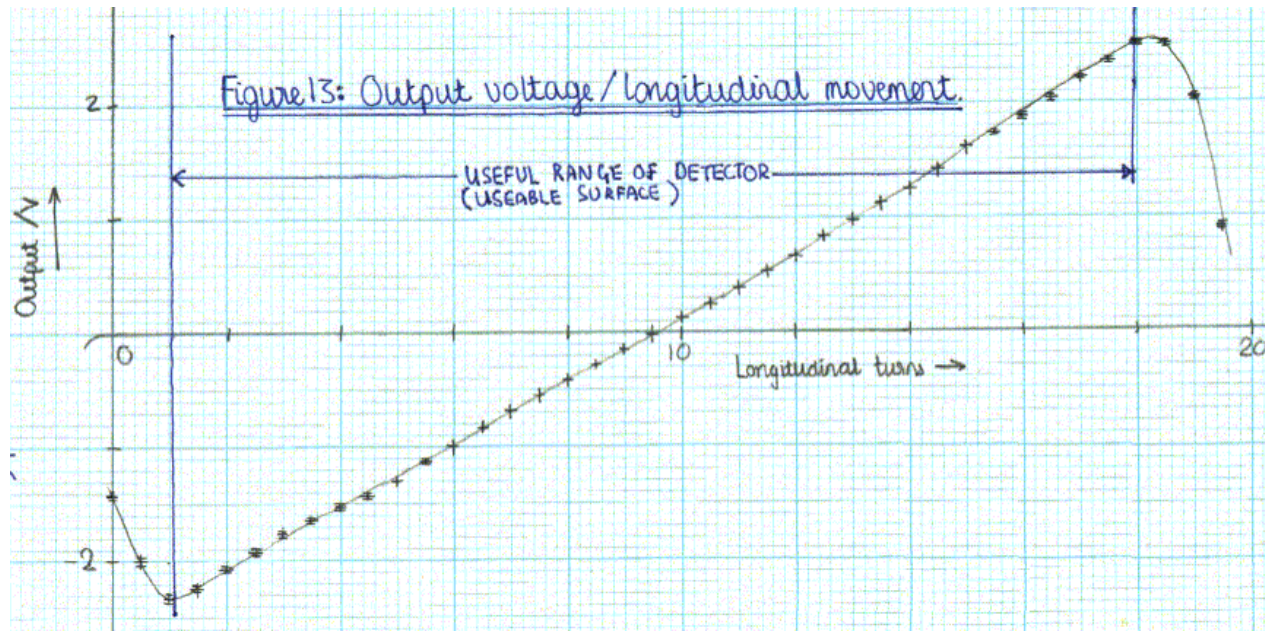 Figure 13: Output voltage/longitudinal movement.
2
USEFUL RANGE OF DETECTOR
(USEABLE SURFACE)
Output /V
0
10
20
Longitudinal turns
-2